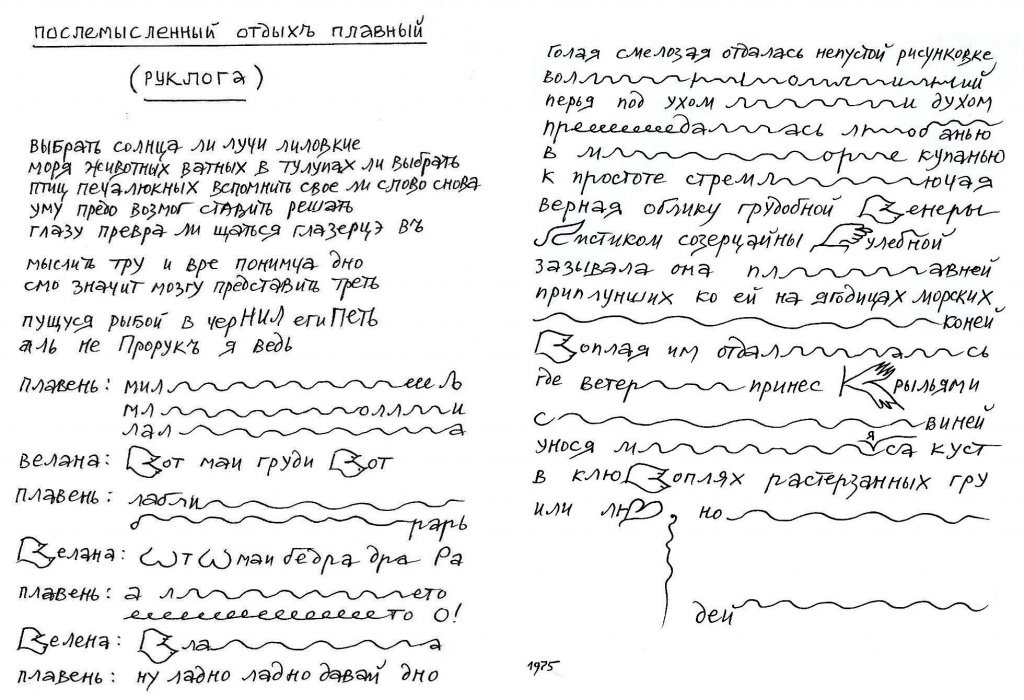 ПОСЛЕМЫСЛЕННЫЙ ОТДЫХЪ ПЛАВНЫЙ
(РУКЛОГА)
ВЫБРАТЬ СОЛНЦА ЛИ ЛУЧИ ЛИЛОВКИЕ
МОРЯ ЖИВОТНЫХ ВАТНЫХ В ТУЛУПАХ ЛИ ВЫБРАТЬ
ПТИЦ ПЕЧАЛЮКНЫХ ВСПОМНИТЬ СВОЕ ЛИ СЛОВО СНОВА
УМУ ПРЕДО ВОЗМОГ СТАВИТЬ РЕШАТЬ
ГЛАЗУ ПРЕВРА ЛИ ЩАТЬСЯ ГЛАЗЕРЦЭ ВЪ
МЫСЛИТЬ ТРУ И ВРЕ ПОНИМЧА ДНО
СМО ЗНАЧИТ МОЗГУ ПРЕДСТАВИТЬ ТРЕТЬ
ПУЩУСЯ РЫБОЙ В черНИЛ егиПЕТЬ
АЛЬ не ПРОРУКЪ я ВЕДЬ
плавень: мил еееЛЬ
мл оллллии
лал а
велана: Вот маи груди Вот
плавень: лабли
рарь
Велана: Wт W маи бёдра дра Ра
плавень: а л ето
еееееееееееето О!
Велена: Вла а
плавень: ну ладно ладно давай дно
Голая смелозая отдалась непустой рисунковке
вол ий
перья под ухом и духом
преееееееда ась любоbанью
в м орле купанью
к простоте стремл ючая
верная облику грудобной Венеры
Листиком созерцайны улебной
зазывала она пл авней
приплунших ко ей на ягодицах морских
коней
Воплая им отдал сь
где ветер принес Крыльями
с виней
унося м я са куст
в клю Воплях растерзанных гру
или лю но
дей
1975